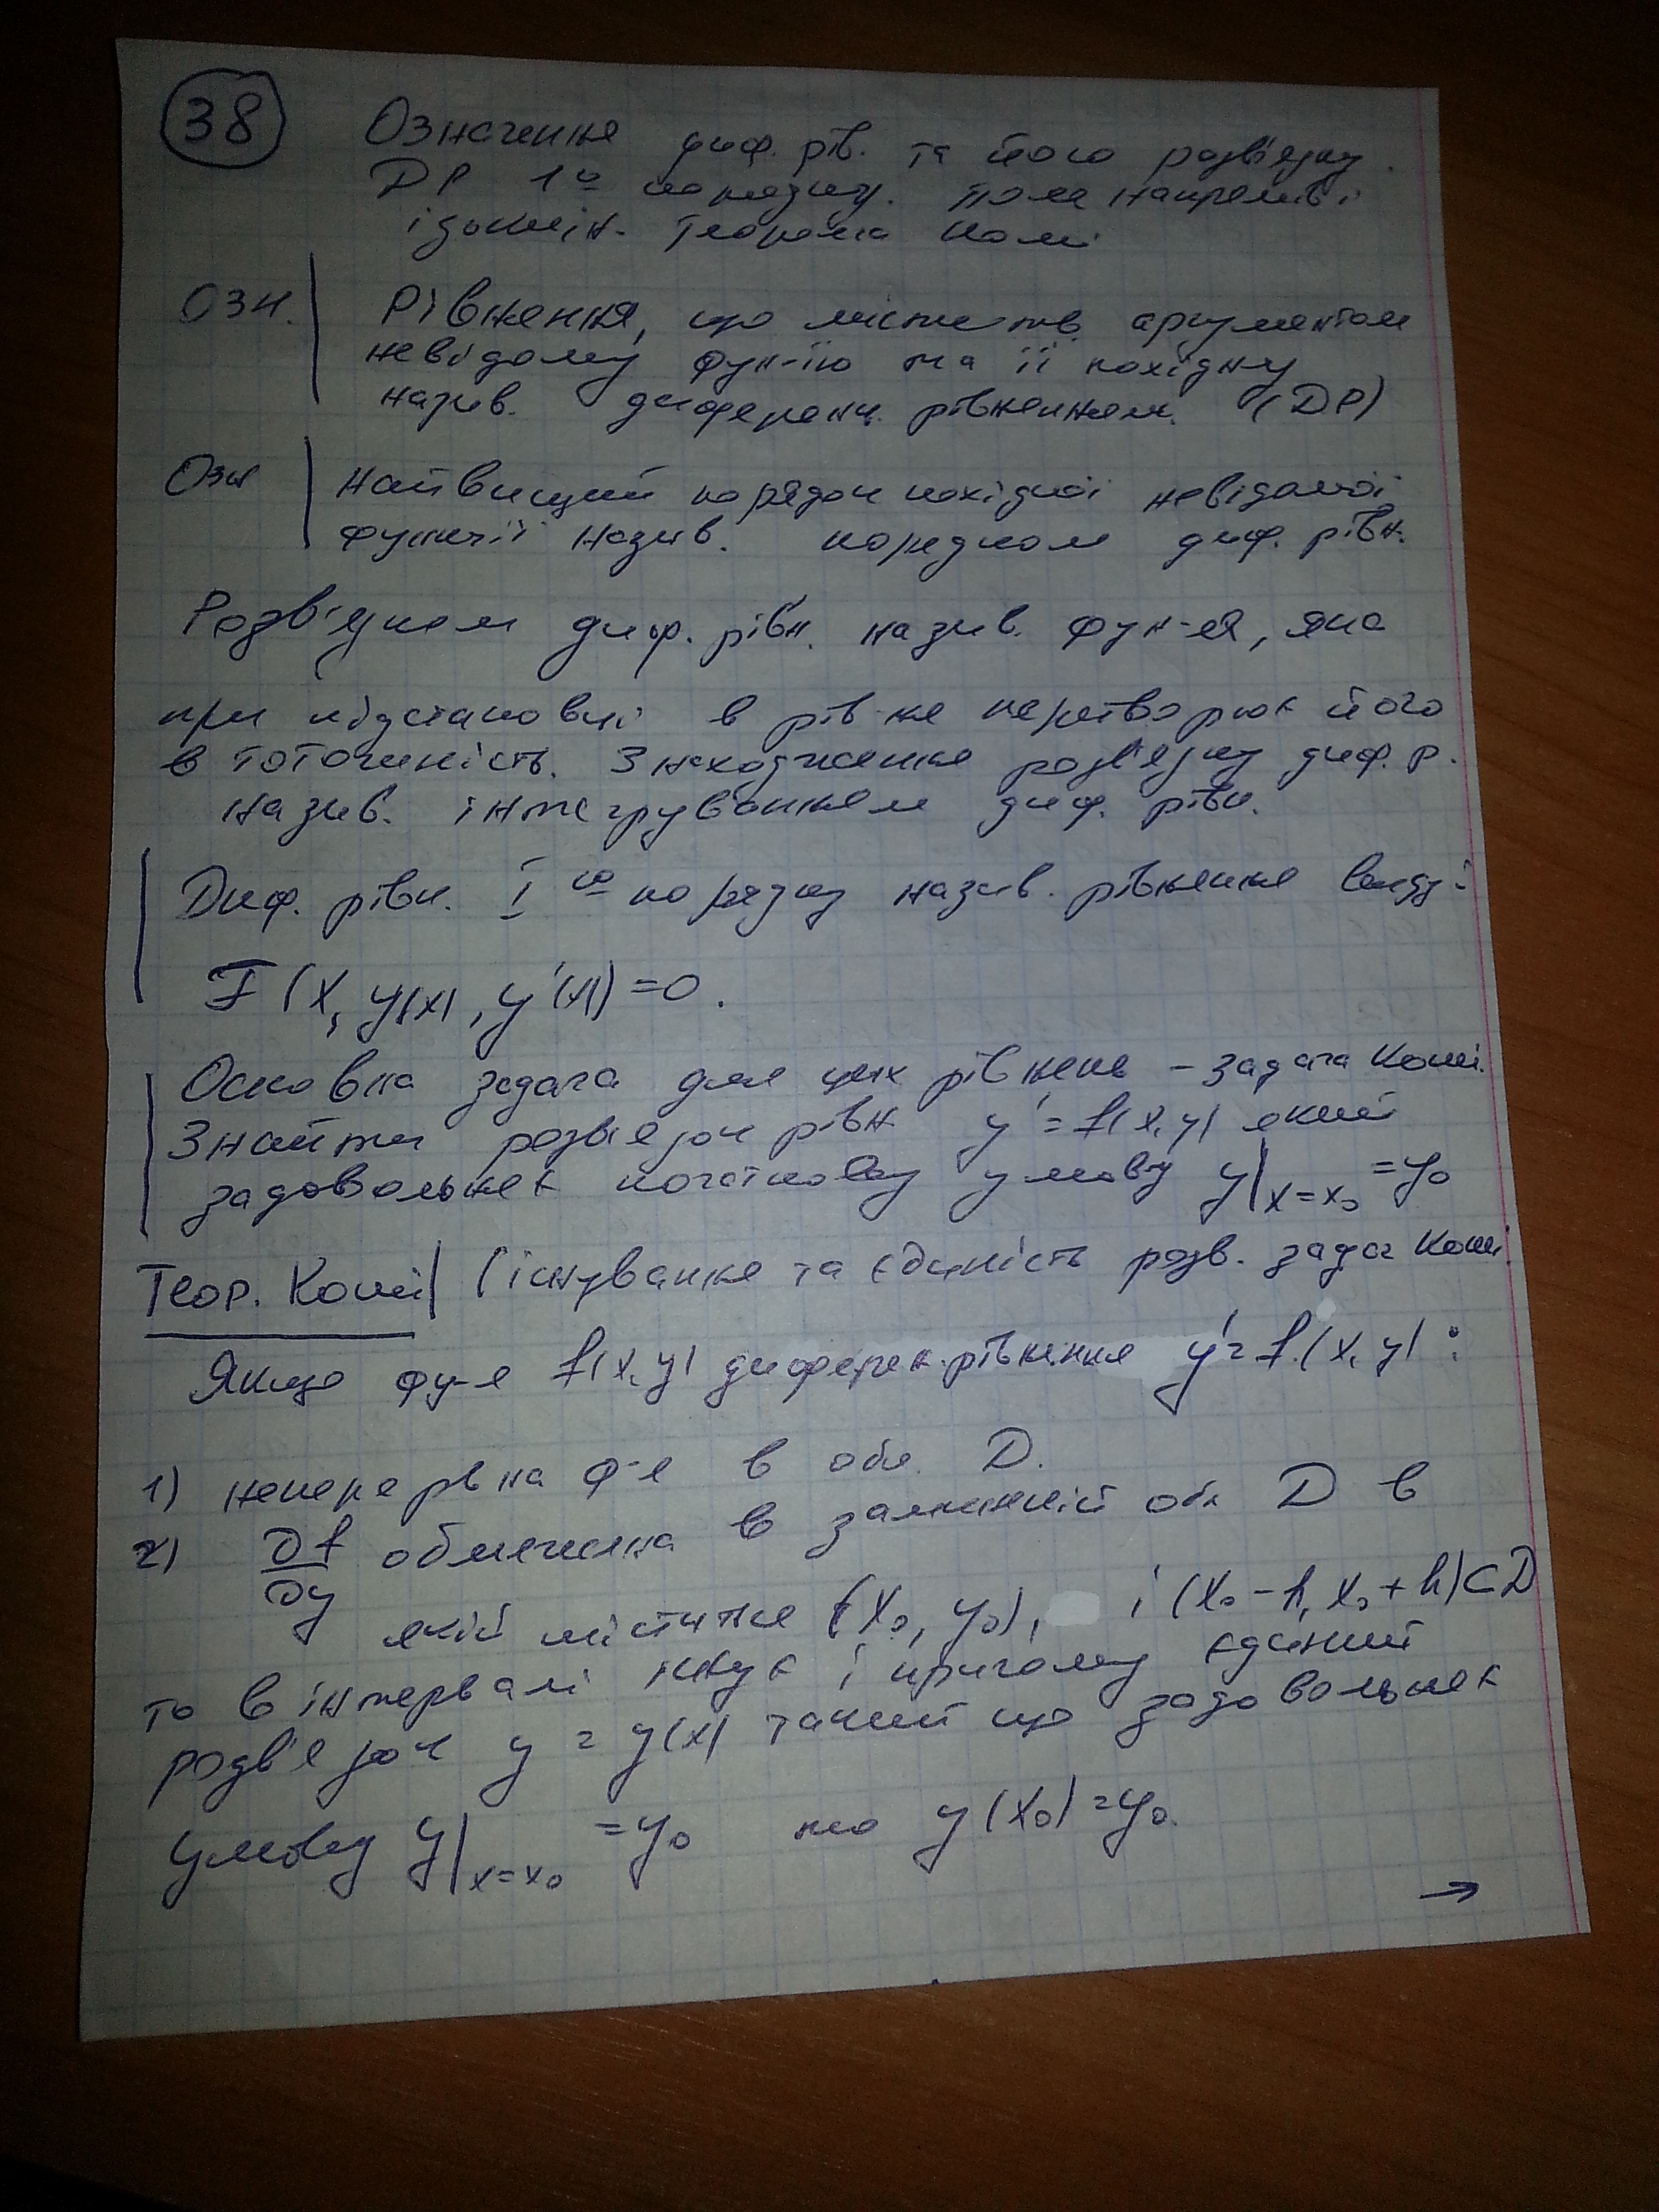 38
Означення диф. рів. та його розв'язку.
ДР 1го порядку. Поле напрямів і
ізоклін. Теорема Коші
Озн. Рівняння, що містить аргументом
невідому фун-ію та її похідну
назив. диференц. рівнянням. (ДР)
Озн Найвищий порядок похідної невідомої
функції назив. порядком диф. рівн.
Розв'язком диф. рівн. назив. фун-ія, яка
при підстановці в рів-ня перетворює його
в тотожність. Знаходження розв'язку диф. р.
назив. інтегруванням диф. рівн.
Диф. рівн. I го порядку назив. рівняння виду:
F(x, y(x), y'(x))=0.
Основна задача для цих рівнянь - задача Коші.
Знайти розв'язок рівн y' = f(x, y) який
задовольняє початкову умову y|x=x₀ = y₀
Теор. Коші (існування та єдиність розв. задач Коші
Якщо фу-я f(x, y) диферен. рівняння y' = f(x, y) :
1) неперервна ф-я в обл. D.
2) ∂f/∂y обмежена в замкненій обл D в
якій міститься (x₀, y₀), і (x₀ - h, x₀ + h) ⊂ D
то в інтервалі існує і причому єдиний
розв'язок y = y(x) такий що задовольняє
умову y|x=x₀ = y₀ то y(x₀) = y₀.
→